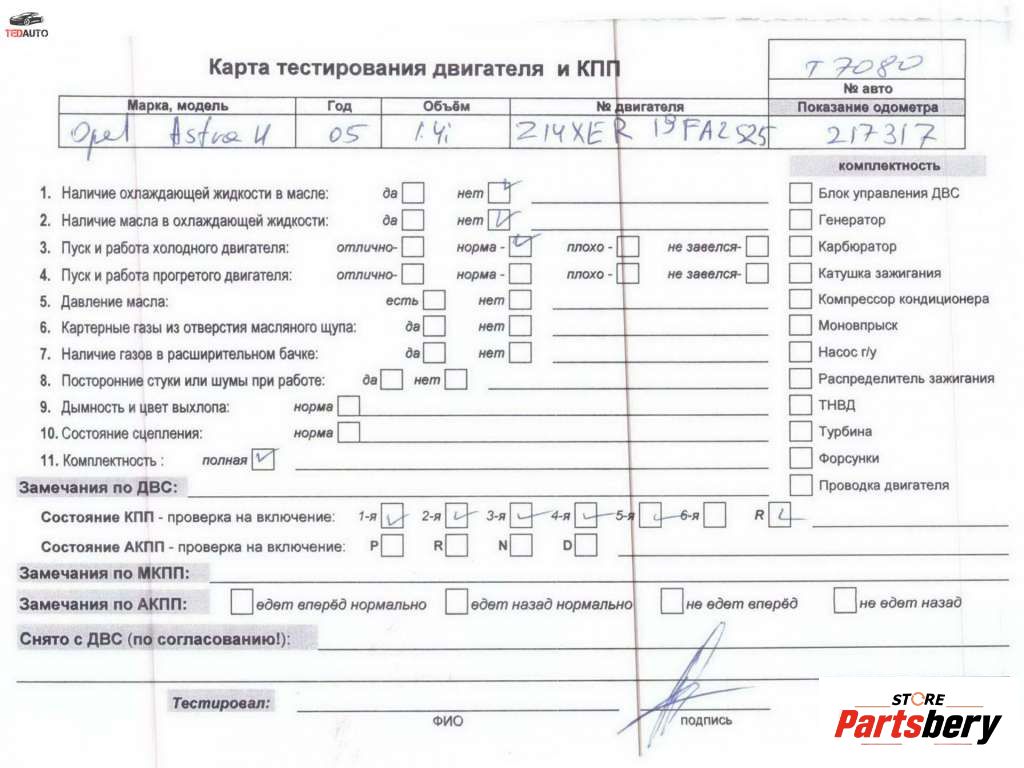 TEDAUTO
Карта тестирования двигателя и КПП
T 7080
№ авто
Марка, модель Год Объём № двигателя Показание одометра
Opel Astra H 05 1.4i Z14XER 19FA2525 217317
комплектность
1. Наличие охлаждающей жидкости в масле: да нет Блок управления ДВС
2. Наличие масла в охлаждающей жидкости: да нет Генератор
3. Пуск и работа холодного двигателя: отлично- норма - плохо - не завелся- Карбюратор
4. Пуск и работа прогретого двигателя: отлично- норма - плохо - не завелся- Катушка зажигания
5. Давление масла: есть нет Компрессор кондиционера
6. Картерные газы из отверстия масляного щупа: да нет Моновпрыск
7. Наличие газов в расширительном бачке: да нет Насос г/у
8. Посторонние стуки или шумы при работе: да нет Распределитель зажигания
9. Дымность и цвет выхлопа: норма ТНВД
10. Состояние сцепления: норма Турбина
11. Комплектность : полная Форсунки
Замечания по ДВС: Проводка двигателя
Состояние КПП - проверка на включение: 1-я 2-я 3-я 4-я 5-я 6-я R
Состояние АКПП - проверка на включение: P R N D
Замечания по МКПП:
Замечания по АКПП: едет вперёд нормально едет назад нормально не едет вперёд не едет назад
Снято с ДВС (по согласованию!):
Тестировал:
ФИО подпись
STORE
Partsbery